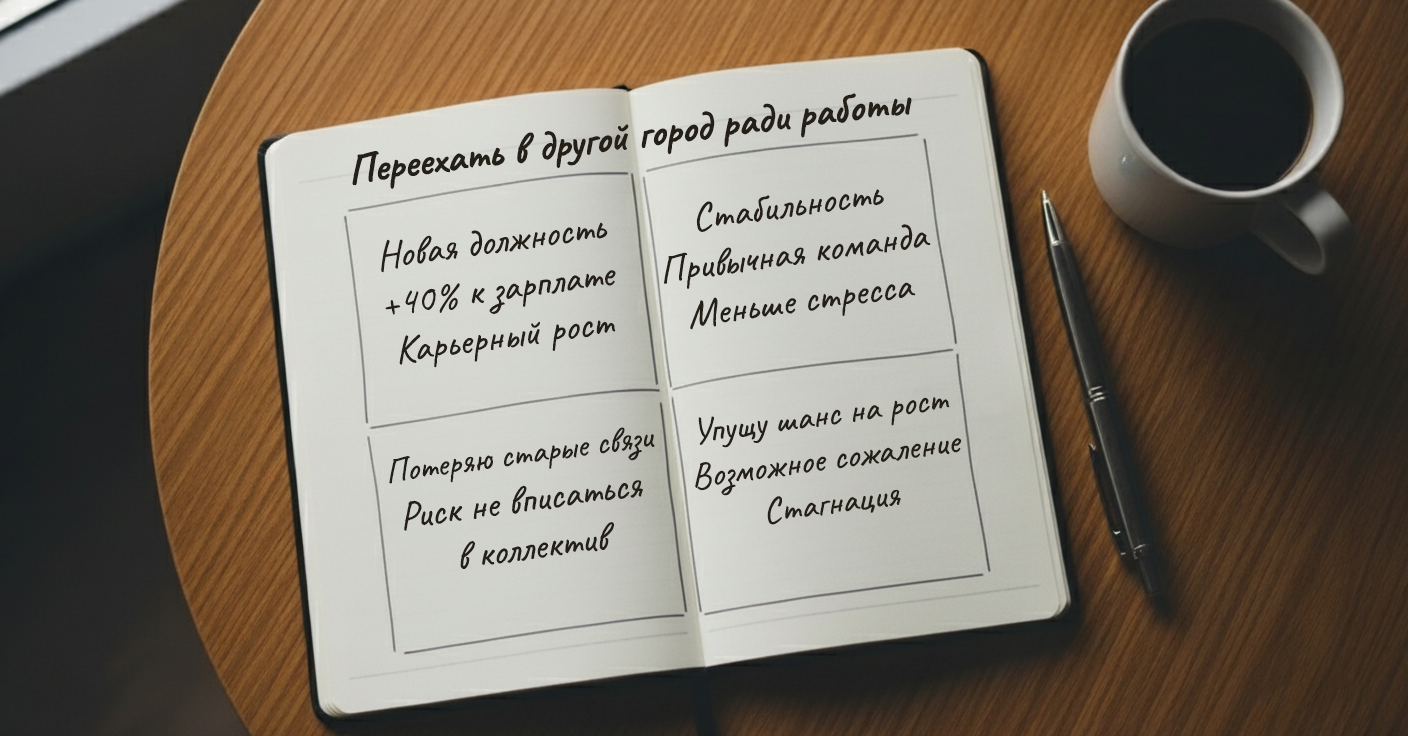 Переехать в другой город ради работы
Новая должность
+40% к зарплате
Карьерный рост
Стабильность
Привычная команда
Меньше стресса
Потеряю старые связи
Риск не вписаться
в коллектив
Упущу шанс на рост
Возможное сожаление
Стагнация